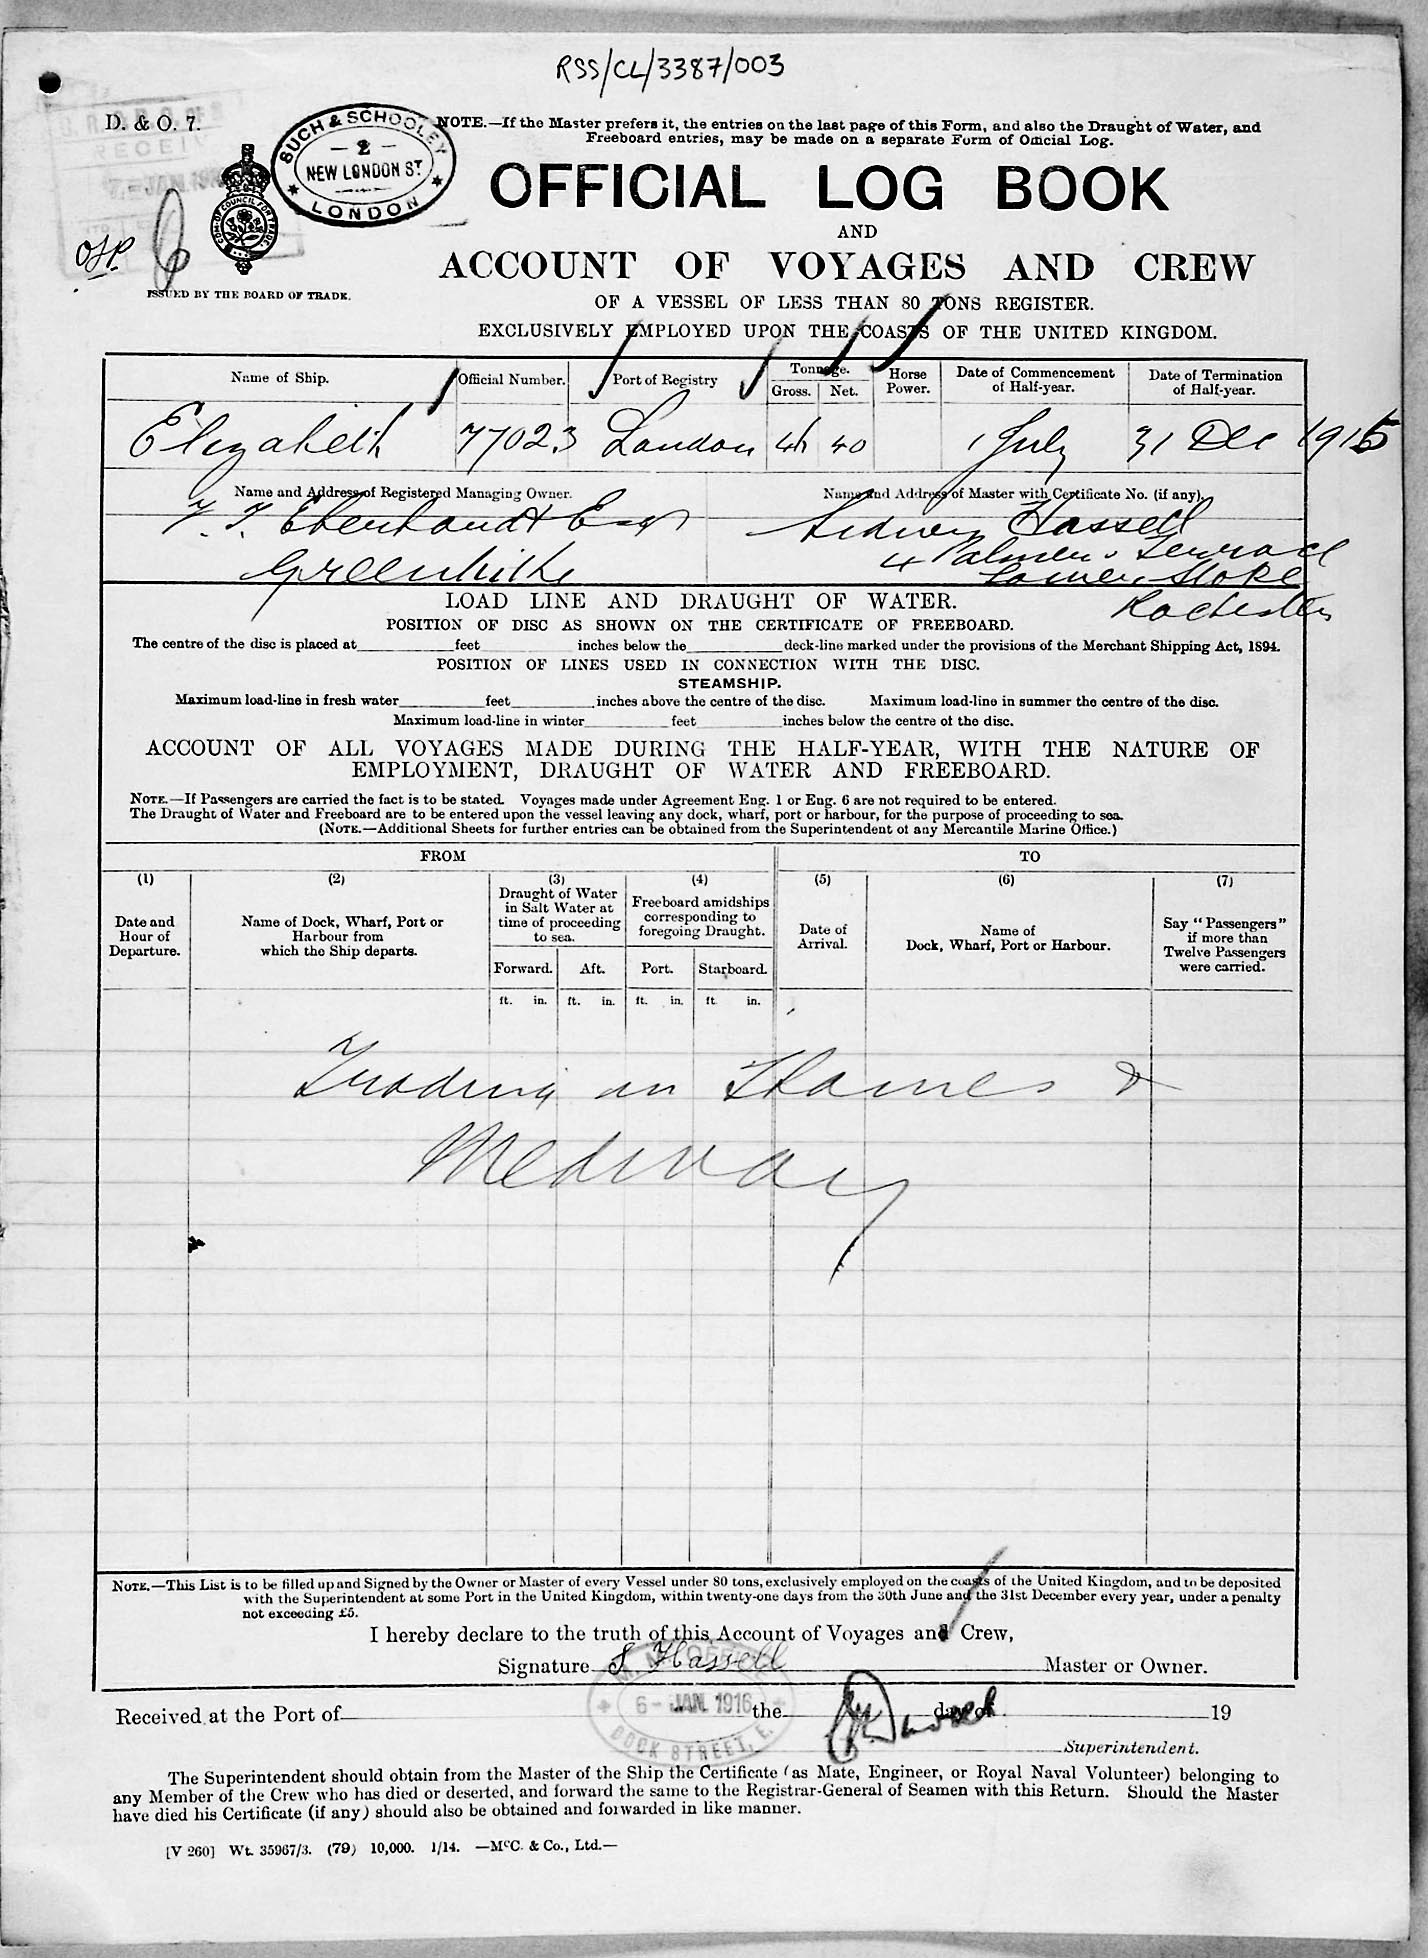 RSS/CL/3387/003
D. & O. 7.
SUCH & SCHOOLEY
2
NEW LONDON ST
LONDON
NOTE.—If the Master prefers it, the entries on the last page of this Form, and also the Draught of Water, and
Freeboard entries, may be made on a separate Form of Official Log.
OFFICIAL LOG BOOK
AND
ACCOUNT OF VOYAGES AND CREW
ISSUED BY THE BOARD OF TRADE.
OF A VESSEL OF LESS THAN 80 TONS REGISTER.
EXCLUSIVELY EMPLOYED UPON THE COASTS OF THE UNITED KINGDOM.
Name of Ship. Official Number. Port of Registry Tonnage. Gross. Net. Horse Power. Date of Commencement of Half-year. Date of Termination of Half-year.
Elizabeth 77023 London 40 1 July 31 Dec 1915
Name and Address of Registered Managing Owner. Name and Address of Master with Certificate No. (if any).
Eberhardt Esqr Sidney Hassell
Greenhithe 4 Palmers Terrace
Lower Stoke
Rochester
LOAD LINE AND DRAUGHT OF WATER.
POSITION OF DISC AS SHOWN ON THE CERTIFICATE OF FREEBOARD.
The centre of the disc is placed at feet inches below the deck-line marked under the provisions of the Merchant Shipping Act, 1894.
POSITION OF LINES USED IN CONNECTION WITH THE DISC.
STEAMSHIP.
Maximum load-line in fresh water feet inches above the centre of the disc. Maximum load-line in summer the centre of the disc.
Maximum load-line in winter feet inches below the centre of the disc.
ACCOUNT OF ALL VOYAGES MADE DURING THE HALF-YEAR, WITH THE NATURE OF
EMPLOYMENT, DRAUGHT OF WATER AND FREEBOARD.
NOTE.—If Passengers are carried the fact is to be stated. Voyages made under Agreement Eng. 1 or Eng. 6 are not required to be entered.
The Draught of Water and Freeboard are to be entered upon the vessel leaving any dock, wharf, port or harbour, for the purpose of proceeding to sea.
(NOTE.—Additional Sheets for further entries can be obtained from the Superintendent of any Mercantile Marine Office.)
FROM TO
(1) (2) (3) (4) (5) (6) (7)
Date and Hour of Departure.
Name of Dock, Wharf, Port or Harbour from which the Ship departs.
Draught of Water in Salt Water at time of proceeding to sea.
Freeboard amidships corresponding to foregoing Draught.
Date of Arrival.
Name of Dock, Wharf, Port or Harbour.
Say "Passengers" if more than Twelve Passengers were carried.
Forward. Aft. Port. Starboard.
ft. in. ft. in. ft. in. ft. in.
Trading in Thames &
Medway
NOTE.—This List is to be filled up and Signed by the Owner or Master of every Vessel under 80 tons, exclusively employed on the coasts of the United Kingdom, and to be deposited
with the Superintendent at some Port in the United Kingdom, within twenty-one days from the 30th June and the 31st December every year, under a penalty
not exceeding £5.
I hereby declare to the truth of this Account of Voyages and Crew,
Signature S Hassell Master or Owner.
6 - JAN. 1916
DOCK STREET, E.
Received at the Port of the day of 19
Superintendent.
The Superintendent should obtain from the Master of the Ship the Certificate (as Mate, Engineer, or Royal Naval Volunteer) belonging to
any Member of the Crew who has died or deserted, and forward the same to the Registrar-General of Seamen with this Return. Should the Master
have died his Certificate (if any) should also be obtained and forwarded in like manner.
[V 260] Wt. 35967/3. (79) 10,000. 1/14. —McC. & Co., Ltd.—